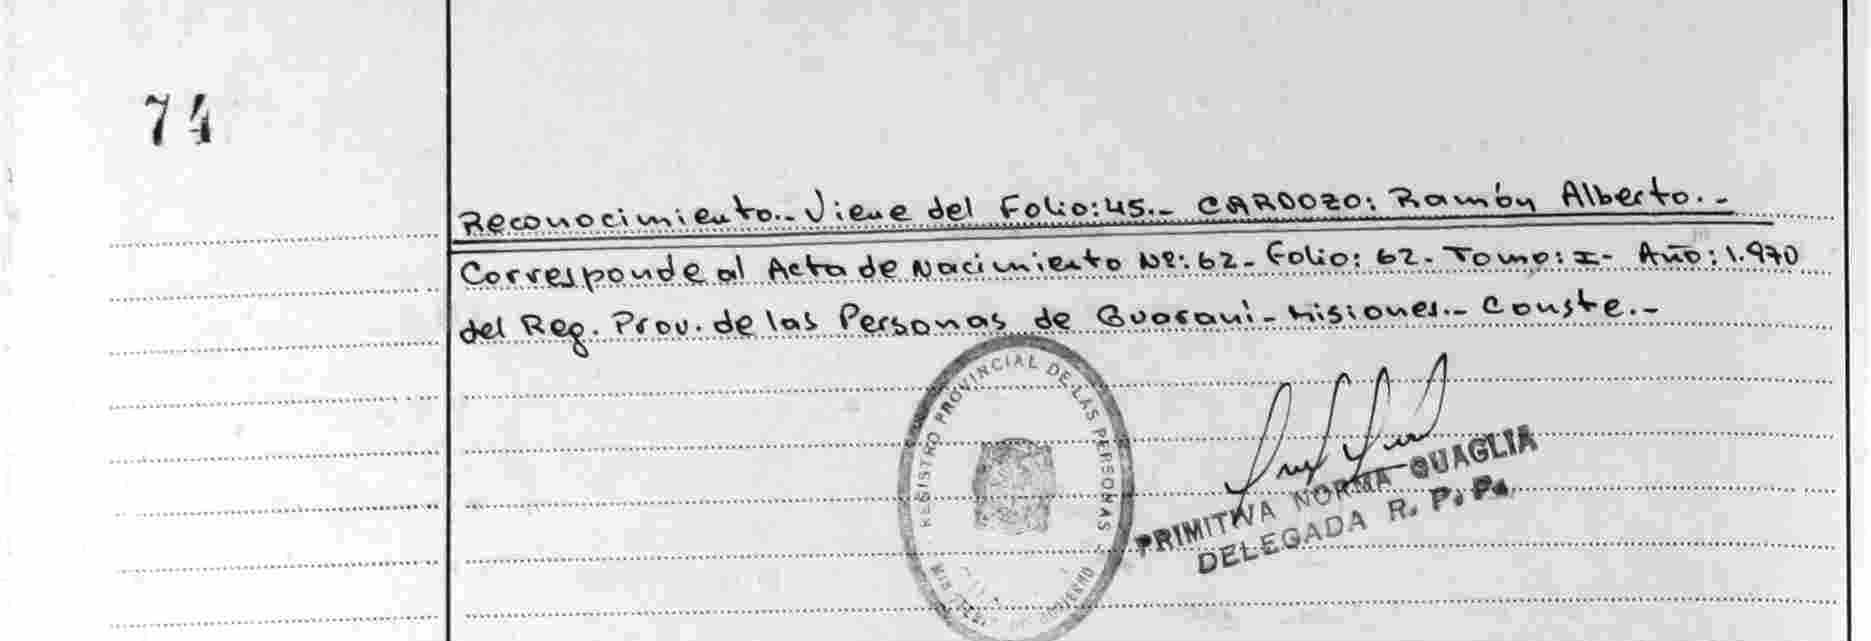 74
Reconocimiento.- Viene del Folio: 45.- CARDOZO: Ramón Alberto.-
Corresponde al Acta de Nacimiento Nº: 62- Folio: 62- Tomo: I- Año: 1.970
del Reg. Prov. de las Personas de Guaraní- Misiones.- Conste.-
REGISTRO PROVINCIAL DE LAS PERSONAS
PRIMITIVA NORMA QUAGLIA
DELEGADA R. P. Ps.